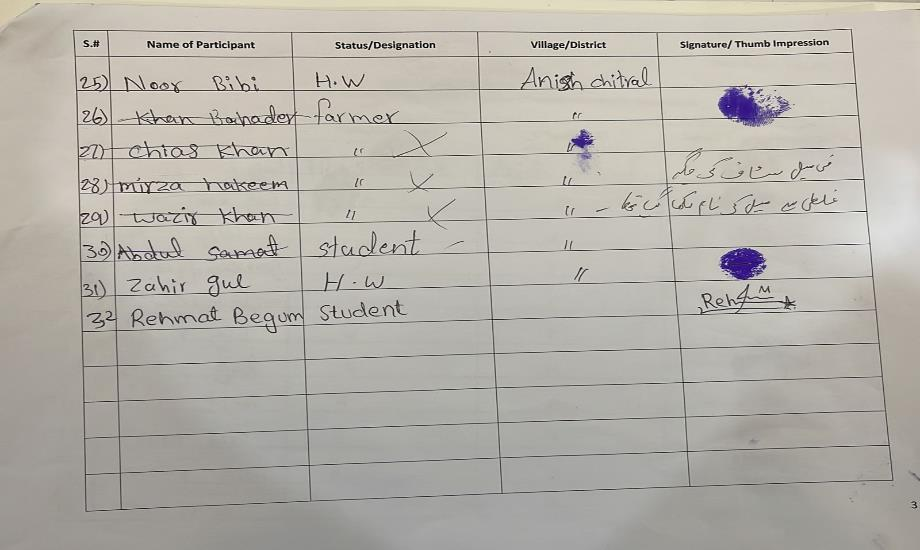 S.# Name of Participant Status/Designation Village/District Signature/ Thumb Impression
25) Noor Bibi H.W Anish chitral
26) Khan Bahader farmer "
27) Chias Khan " X "
28) mirza hakeem " X " فی میل سٹاف کی جگہ
29) wazir Khan " X " – غلطی سے میل کی نام لکھا گیا تھا
30) Abdul Samat student – "
31) Zahir gul H.W "
32 Rehmat Begum Student
3